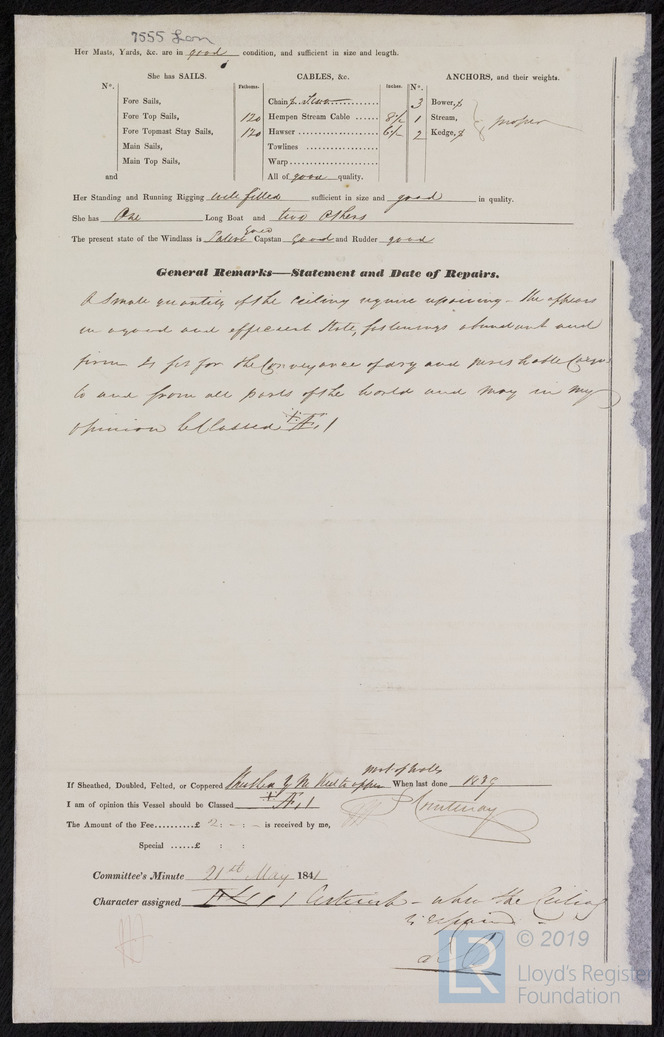 7555 Lon
Her Masts, Yards, &c. are in good condition, and sufficient in size and length.
She has SAILS. CABLES, &c. ANCHORS, and their weights.
N°. Fathoms. Inches. N°.
Fore Sails, Chain 3 Bower,
Fore Top Sails, 120 Hempen Stream Cable ...... 8½ 1 Stream, proper
Fore Topmast Stay Sails, 120 Hawser ..................... 6½ 2 Kedge,
Main Sails, Towlines ..................
Main Top Sails, Warp.......................
and All of good quality.
Her Standing and Running Rigging well fitted sufficient in size and good in quality.
She has One Long Boat and two others
The present state of the Windlass is Patent Good Capstan good and Rudder good
General Remarks—Statement and Date of Repairs.
A small quantity of the ceiling require repairing - She appears
in a good and efficient State, fastenings abundant and
firm Is fit for the Conveyance of dry and perishable Cargo
to and from all parts of the World and may in my
opinion be Classed Æ 1
If Sheathed, Doubled, Felted, or Coppered When last done 1839
I am of opinion this Vessel should be Classed Æ 1
P Courtenay
The Amount of the Fee..........£ 2 : - : - is received by me,
Special ......£ : :
Committee's Minute 21st May 1841
Character assigned Æ 1 - when the Ceiling
is repaired
© 2019
LR
Lloyd's Register
Foundation